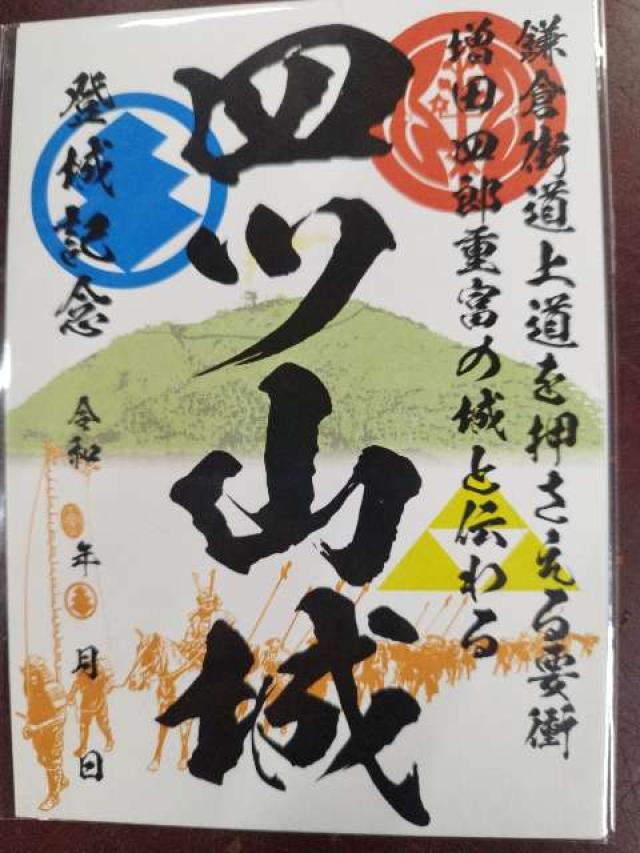 鎌倉街道上道を押さえる要衝
増田四郎重富の城と伝わる
四ツ山城
登城記念
令和 年 月 日